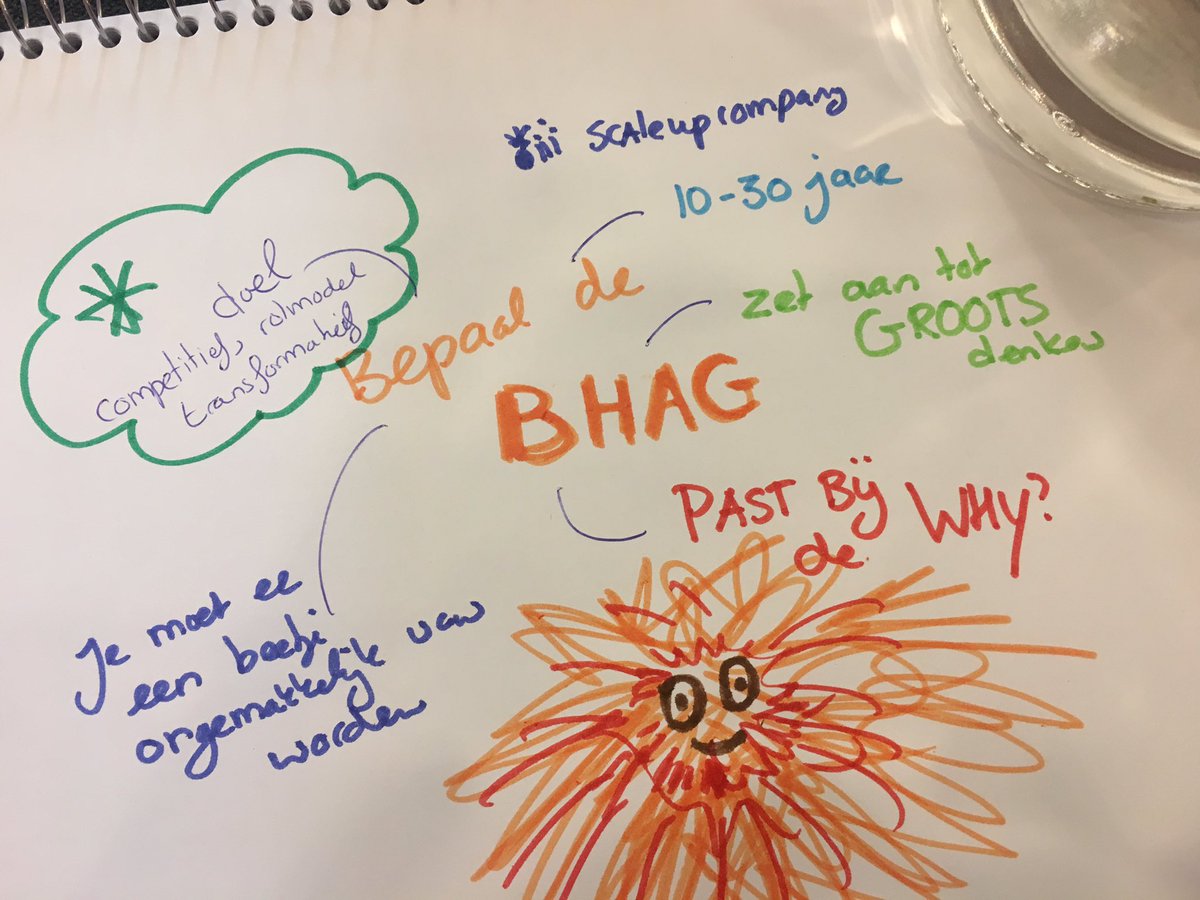 scaleupcompany
10-30 jaar
zet aan tot
GROOTS
denken
doel
competitief, rolmodel
transformatief
Bepaal de
BHAG
PAST Bij
de WHY?
Je moet er
een beetje
ongemakkelijk van
worden